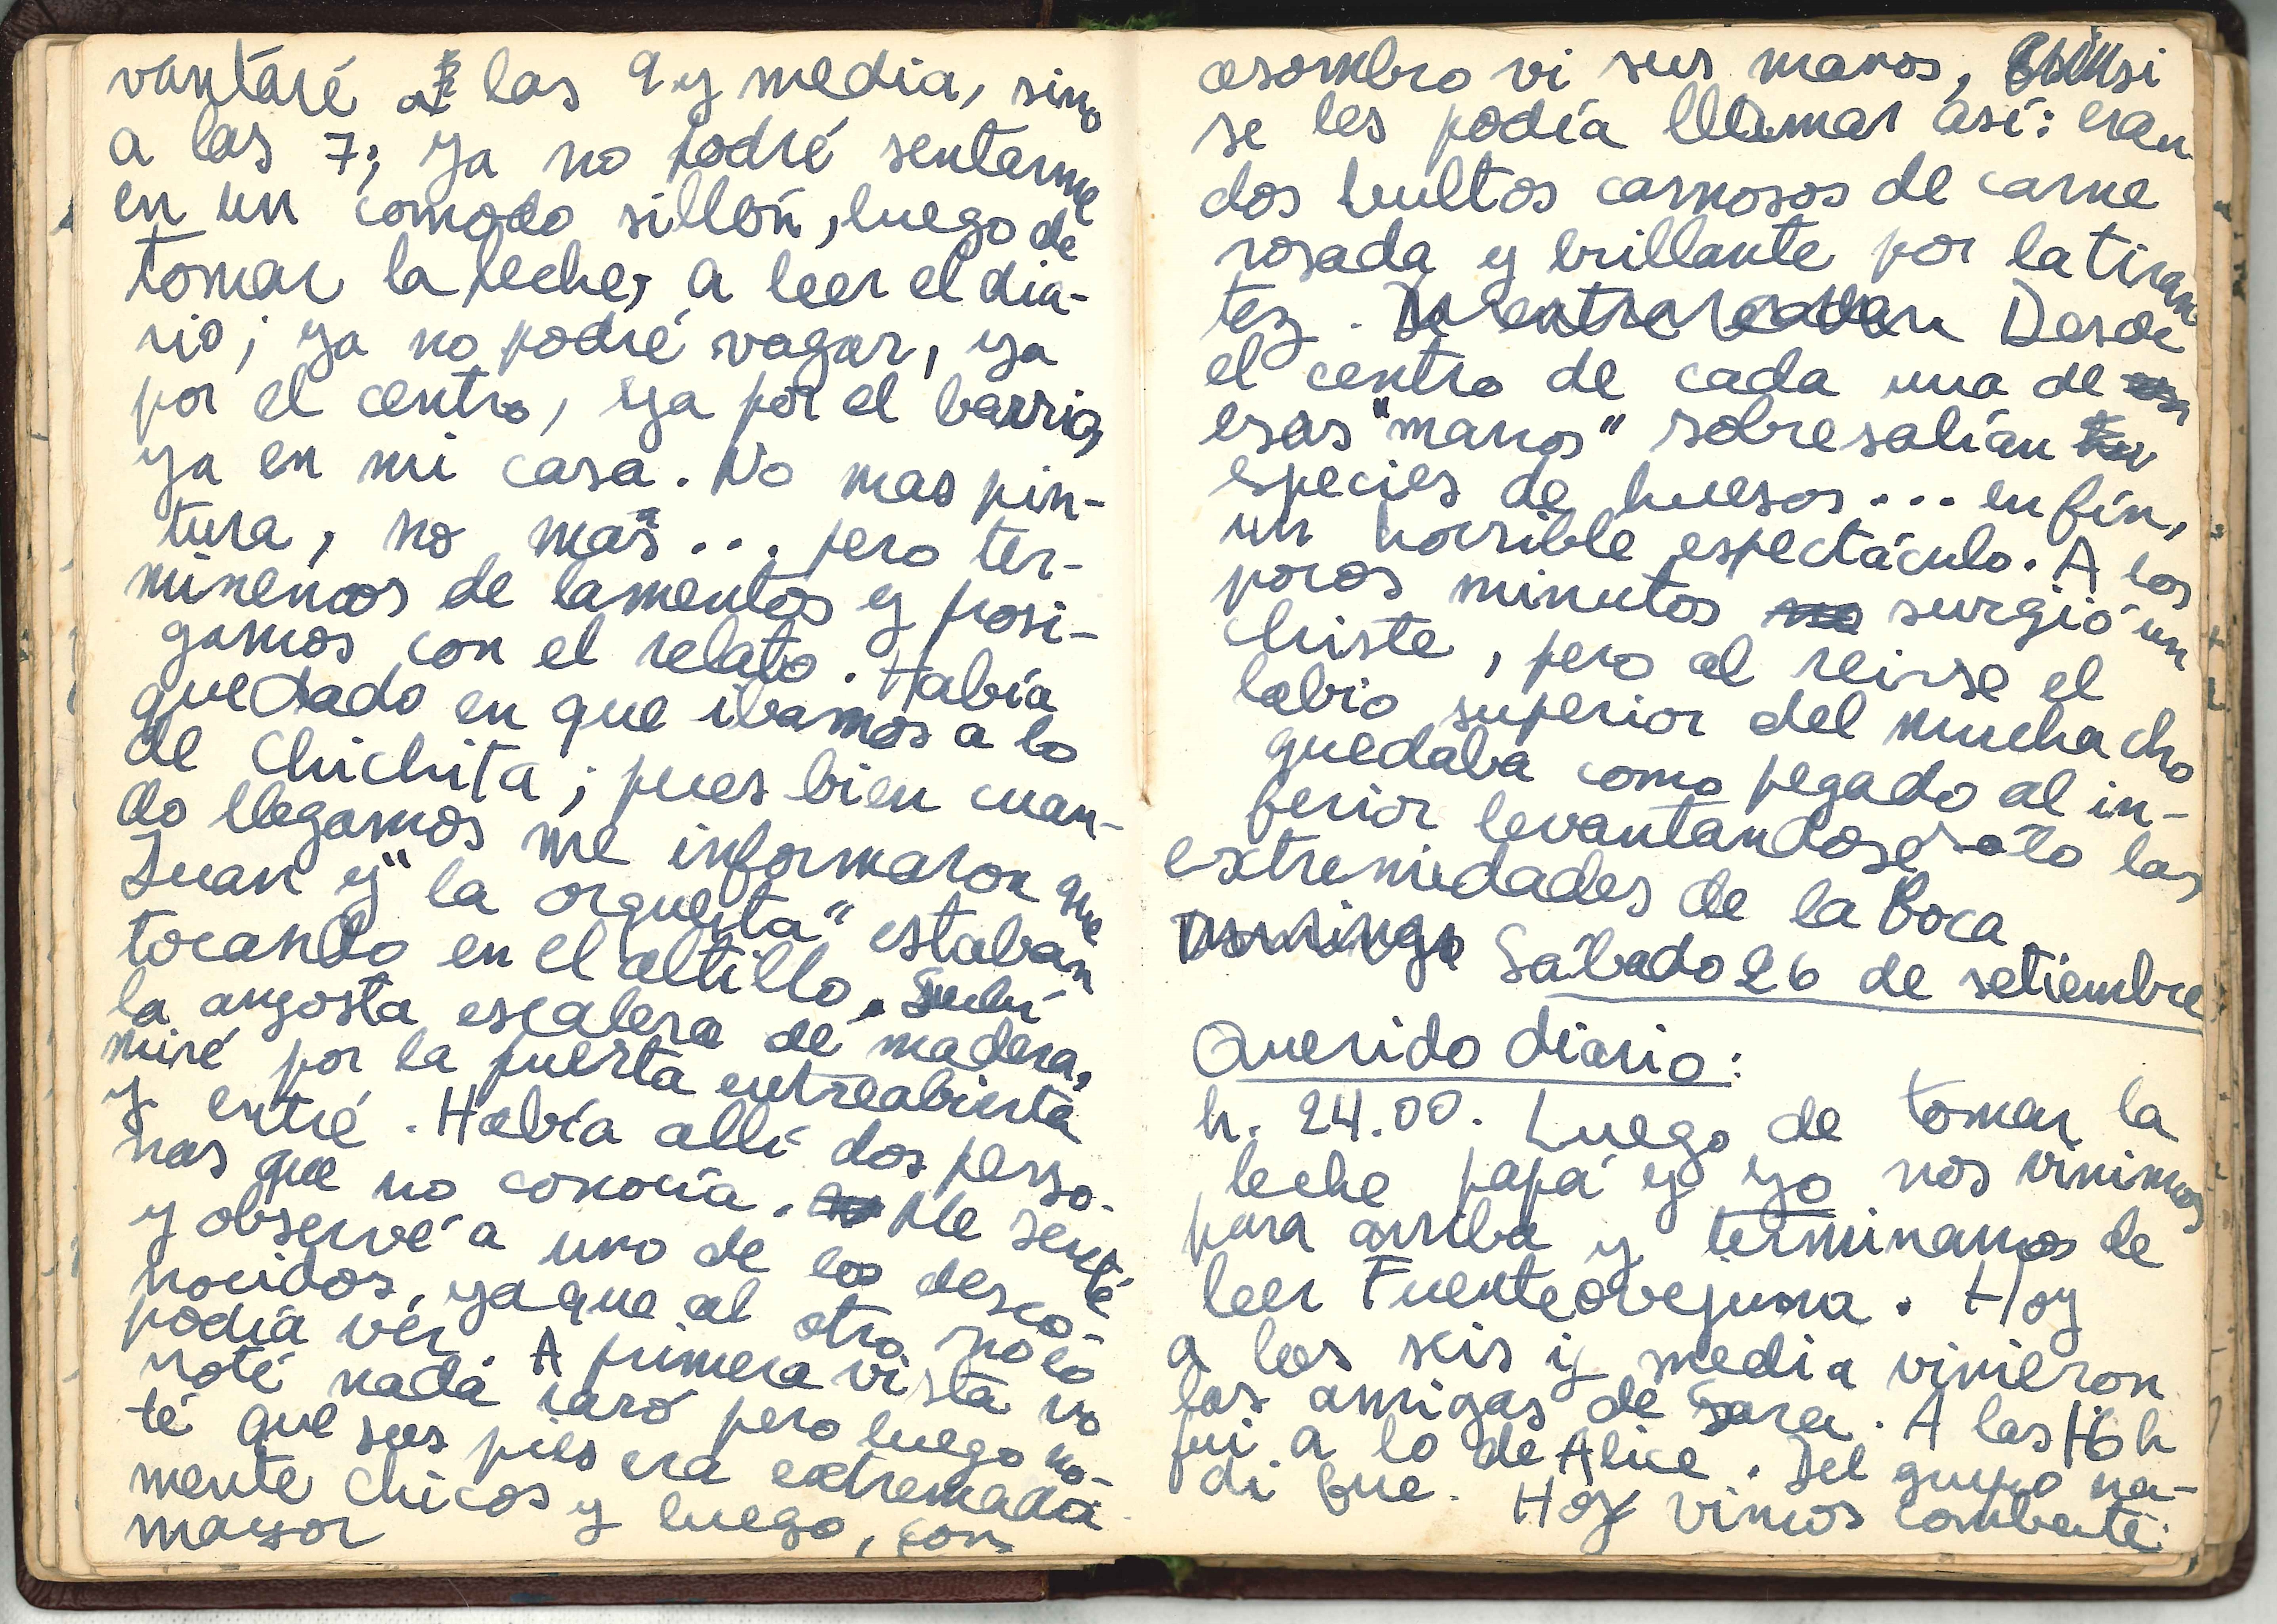 vantaré a las 9 y media, sino
a las 7; ya no podré sentarme
en un comodo sillón, luego de
tomar la leche, a leer el dia-
rio; ya no podré vagar, ya
por el centro, ya por el barrio,
ya en mi casa. No mas pin-
tura, no mas... pero ter-
minemos de lamentos y prosi-
gamos con el relato. Había
quedado en que ibamos a lo
de Chichita; pues bien cuan-
do llegamos me informaron que
Juan y "la orquesta" estaban
tocando en el altillo. Subí
la angosta escalera de madera,
miré por la puerta entreabierta
y entré. Había allí dos perso-
nas que no conocía. Me senté
y observé a uno de los desco-
nocidos, ya que al otro no lo
podía ver. A primera vista no
noté nada raro pero luego no-
té que sus pies era extremada
mente chicos y luego, con
mayor
asombro vi sus manos, si
se les podía llamar así: eran
dos bultos carnosos de carne
rosada y brillante por la tiran
tez. Desde
el centro de cada una de
esas "manos" sobresalían
especies de huesos... en fín,
un horrible espectáculo. A los
pocos minutos surgió un
chiste, pero al reirse el
labio superior del muchacho
quedaba como pegado al in-
ferior levantandose sólo las
extremidades de la boca.
Domingo Sábado 26 de setiembre
Querido diario:
h. 24.00. Luego de tomar la
leche papá y yo nos vinimos
para arriba y terminamos de
leer Fuenteovejuna. Hoy
a las seis y media vinieron
las amigas de Sara. A las h
fui a lo de Alice. Del grupo na-
di fue. Hoy vimos combate.